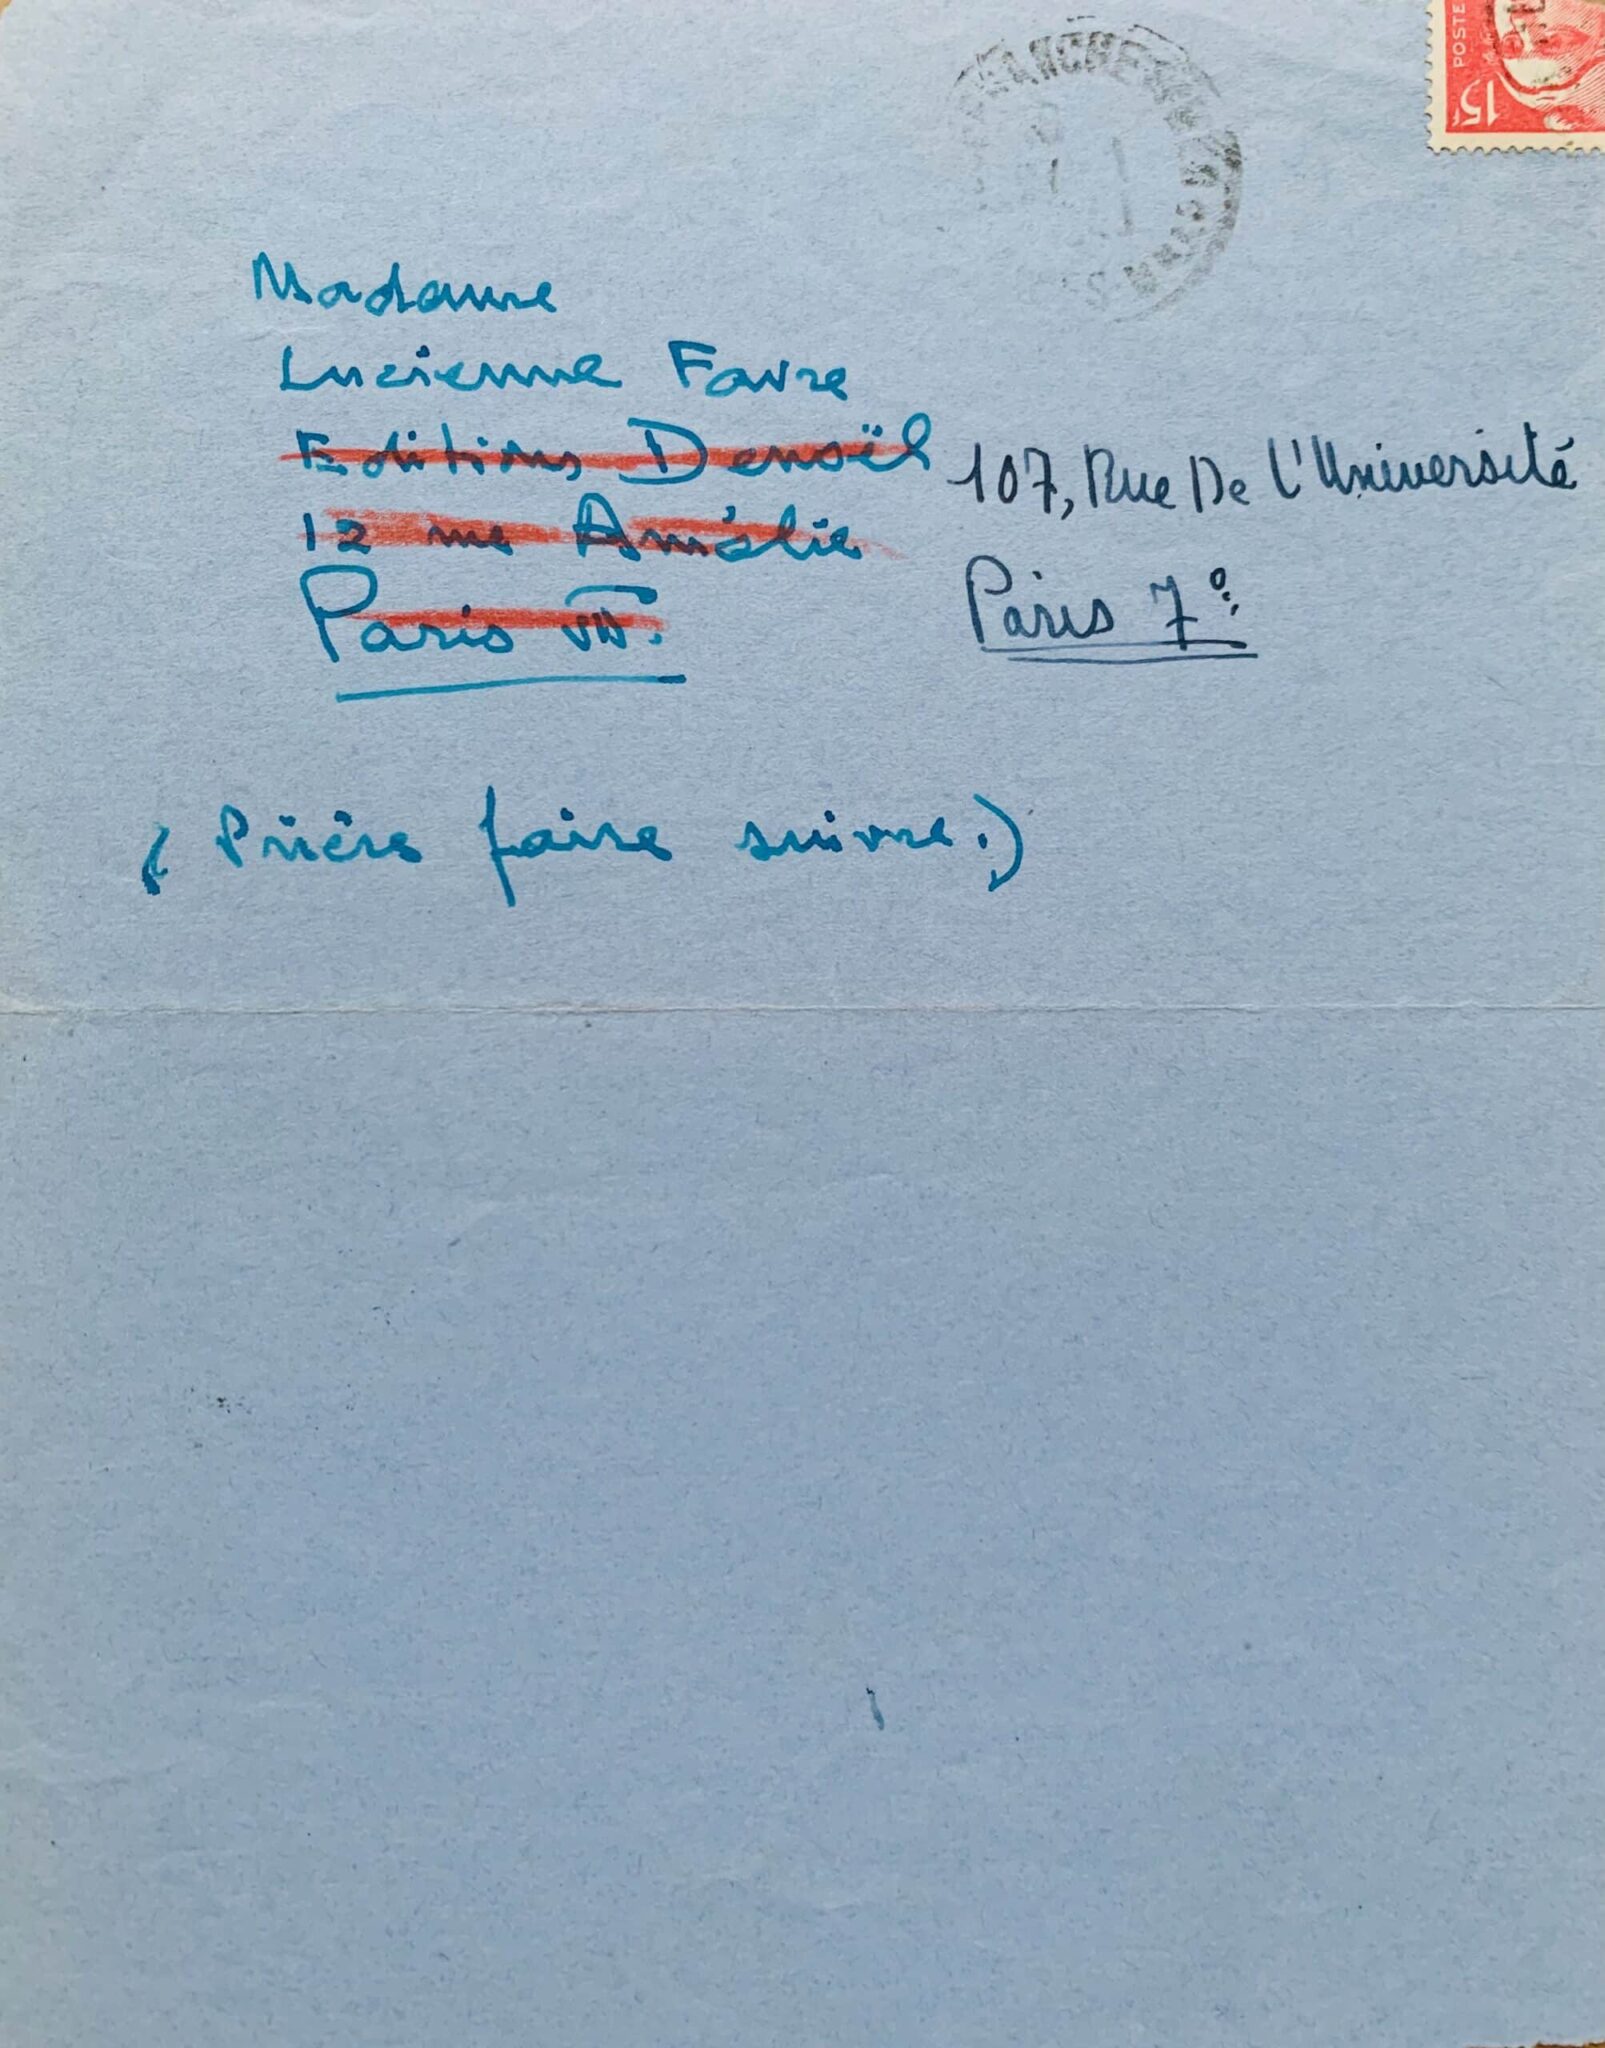 POSTE
15f
Madame
Lucienne Favre
Editions Denoël
12 rue Amélie
Paris VII.
107, Rue De L'Université
Paris 7e.
(Prière faire suivre.)